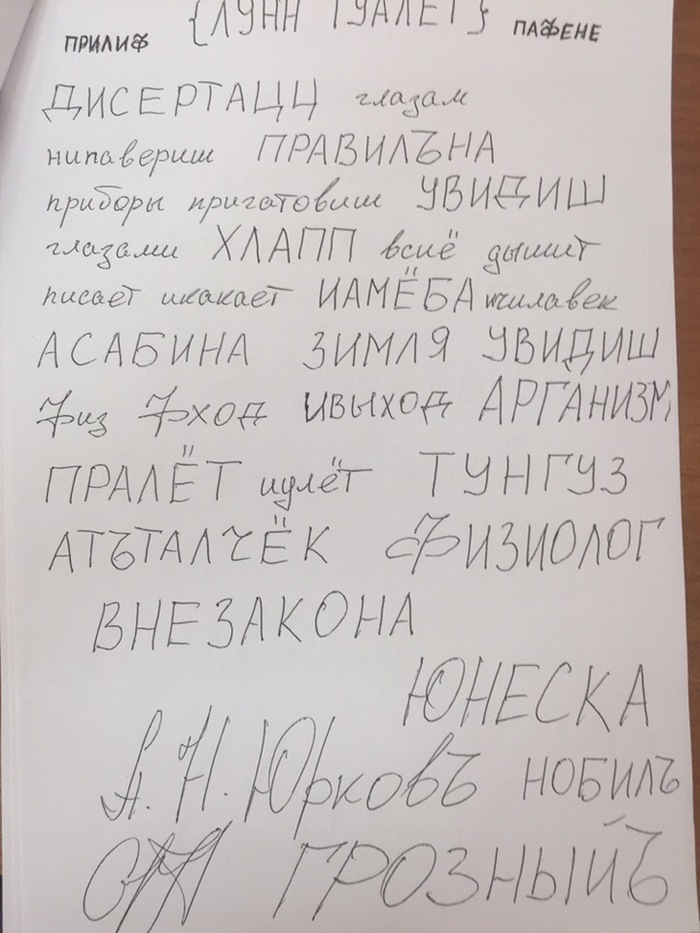 {ЛУНН ТУАЛЕТ}
ПРИЛИФ ПАФЕНЕ
ДИСЕРТАЦЦ глазам
нипавериш ПРАВИЛЪНА
приборы пригатовиш УВИДИШ
глазами ХЛАПП всиё дышит
писает икакает ИАМЁБА ичилавек
АСАБИНА ЗИМЛЯ УВИДИШ
Физ Фход ивыход АРГАНИЗМ
ПРАЛЁТ идлёт ТУНГУЗ
АТЪТАЛЧЁК ФИЗИОЛОГ
ВНЕЗАКОНА
ЮНЕСКА
А.Н.Юрковъ НОБИЛЪ
ГРОЗНЫЙЪ